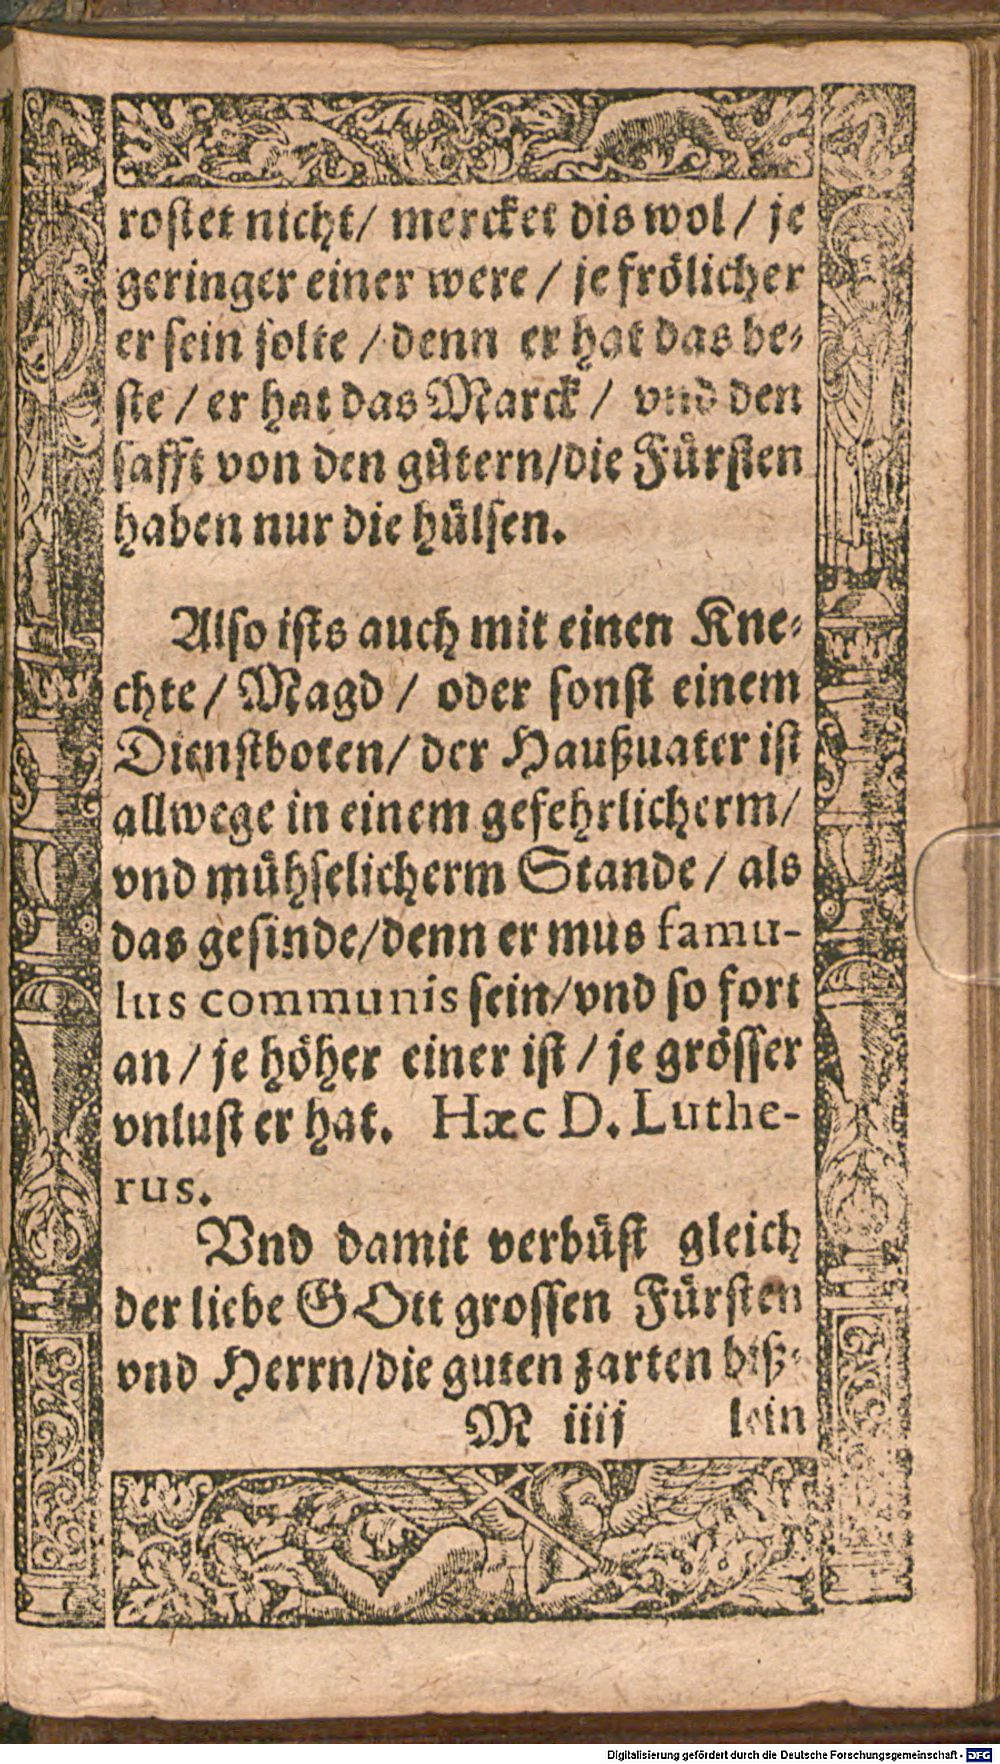 rostet nicht/ mercket dis wol / je
geringer einer were / je frölicher
er sein solte / denn er hat das be-
ste / er hat das Marck / vnd den
safft von den gütern/die Fürsten
haben nur die hülsen.
Also ists auch mit einen Kne-
chte / Magd / oder sonst einem
Dienstboten/ der Haußuater ist
allwege in einem gefehrlicherm/
vnd mühselicherm Stande / als
das gesinde/denn er mus famu-
lus communis sein/vnd so fort
an / je höher einer ist / je grösser
vnlust er hat. Hæc D. Luthe-
rus.
Vnd damit verbüst gleich
der liebe GOtt grossen Fürsten
vnd Herrn/die guten zarten biß-
M iiij lein
Digitalisierung gefördert durch die Deutsche Forschungsgemeinschaft - DFG